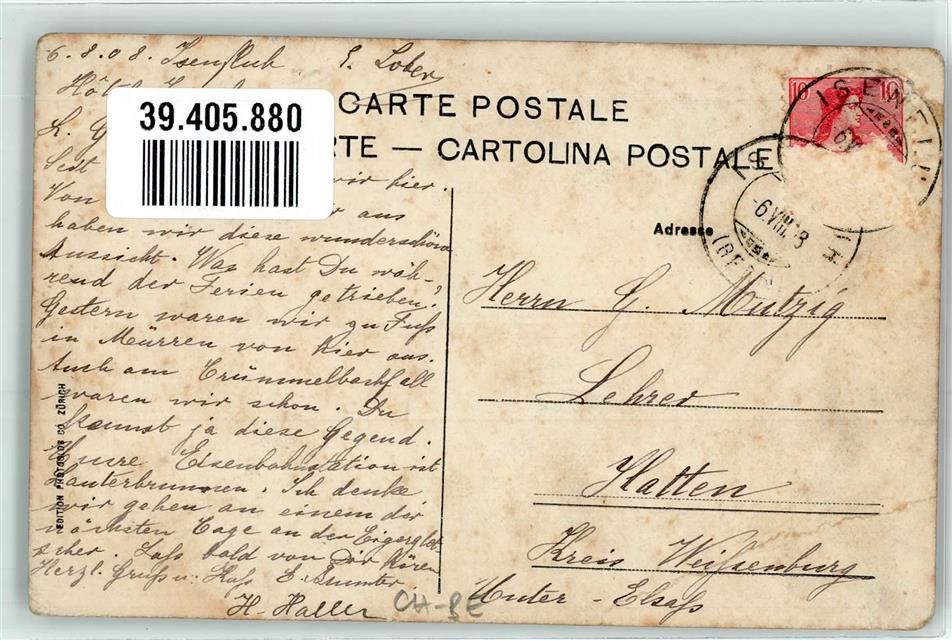 6.8.08. Isenfluh
Hôtel
L. G
Seit wir hier.
Von aus
haben wir diese wunderschöne
Aussicht. Was hast Du wäh-
rend der Ferien getrieben?
Gestern waren wir zu Fuß
in Mürren von hier aus.
Auch am Trümmelbachfall
waren wir schon. Du
kennst ja diese Gegend.
Unsre Eisenbahnstation ist
Lauterbrunnen. Ich denke
wir gehen an einem der
nächsten Tage an der Eigerglet-
scher. Laß bald von Dir hören
Herzl. Gruß u. Kuß E.
H. Haller
39.405.880
CARTE POSTALE
RTE — CARTOLINA POSTALE
10 10
ISENFLU
-6.VIII.
Adresse
Herrn G. Mutzig
Lehrer
Hatten
Kreis Weißenburg
Unter-Elsaß
CH-BE
EDITION PHOTOGLOB CO. ZÜRICH